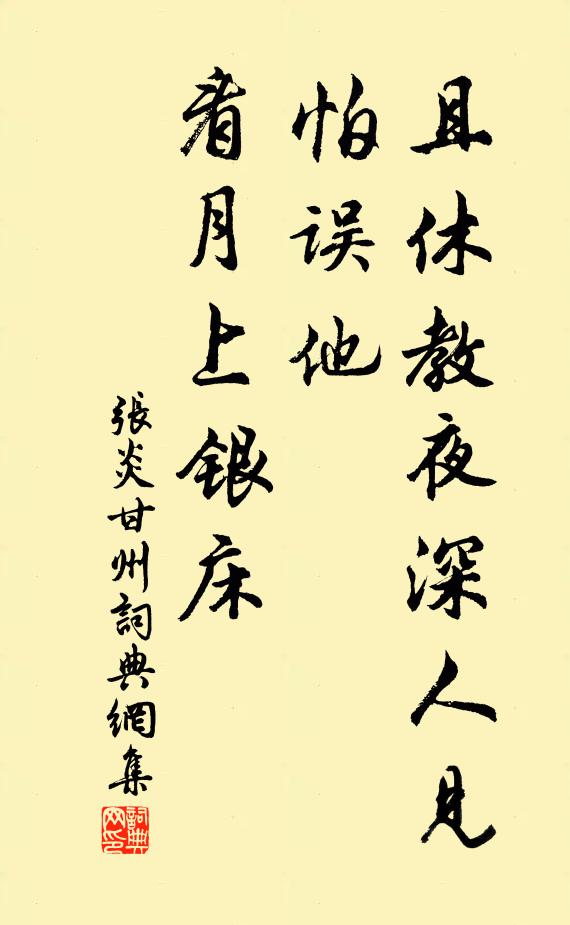 且休教夜深人見
怕误他
看月上銀床
張炎甘州詞典網集
詞典网印